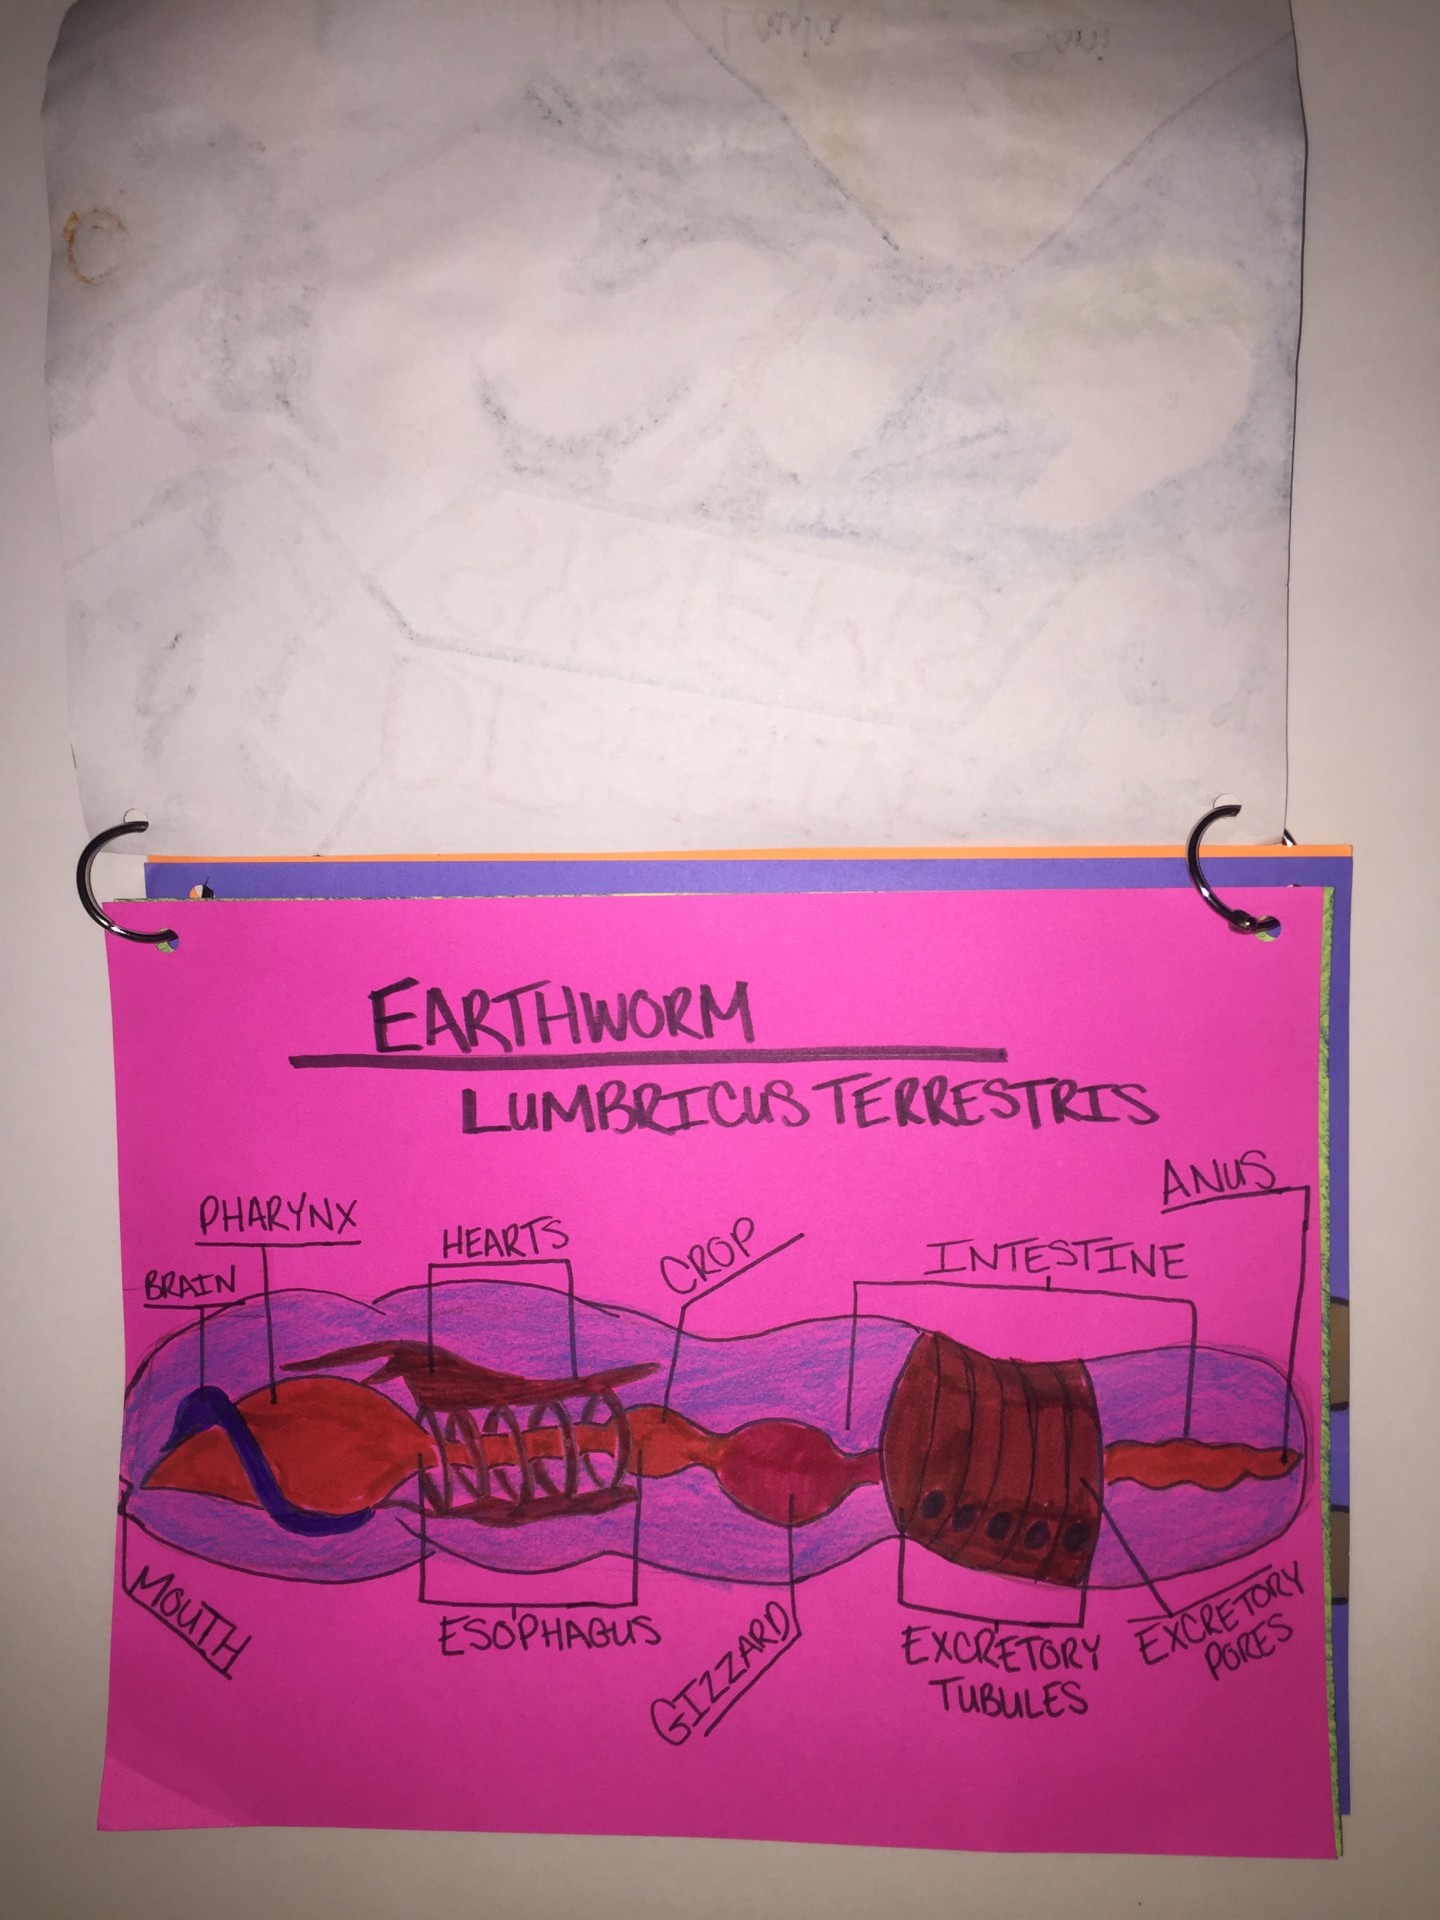 EARTHWORM
LUMBRICUS TERRESTRIS
ANUS
PHARYNX
HEARTS
CROP
INTESTINE
BRAIN
MOUTH
ESOPHAGUS
GIZZARD
EXCRETORY
TUBULES
EXCRETORY
PORES